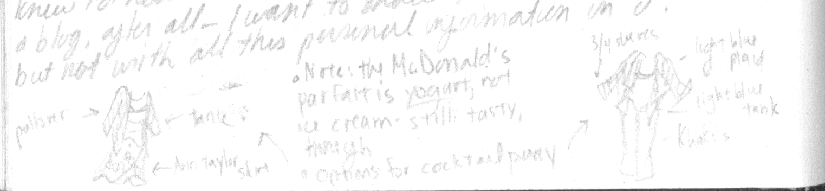 a blog, after all - I want to
but not with all this personal information in it.
• Note: the McDonald's
parfait is yogurt, not
ice cream - still tasty,
though
• options for cocktail party
pullover
tank
Ann Taylor
skirt
3/4 sleeves
light blue
plaid
light blue
tank
Khakis